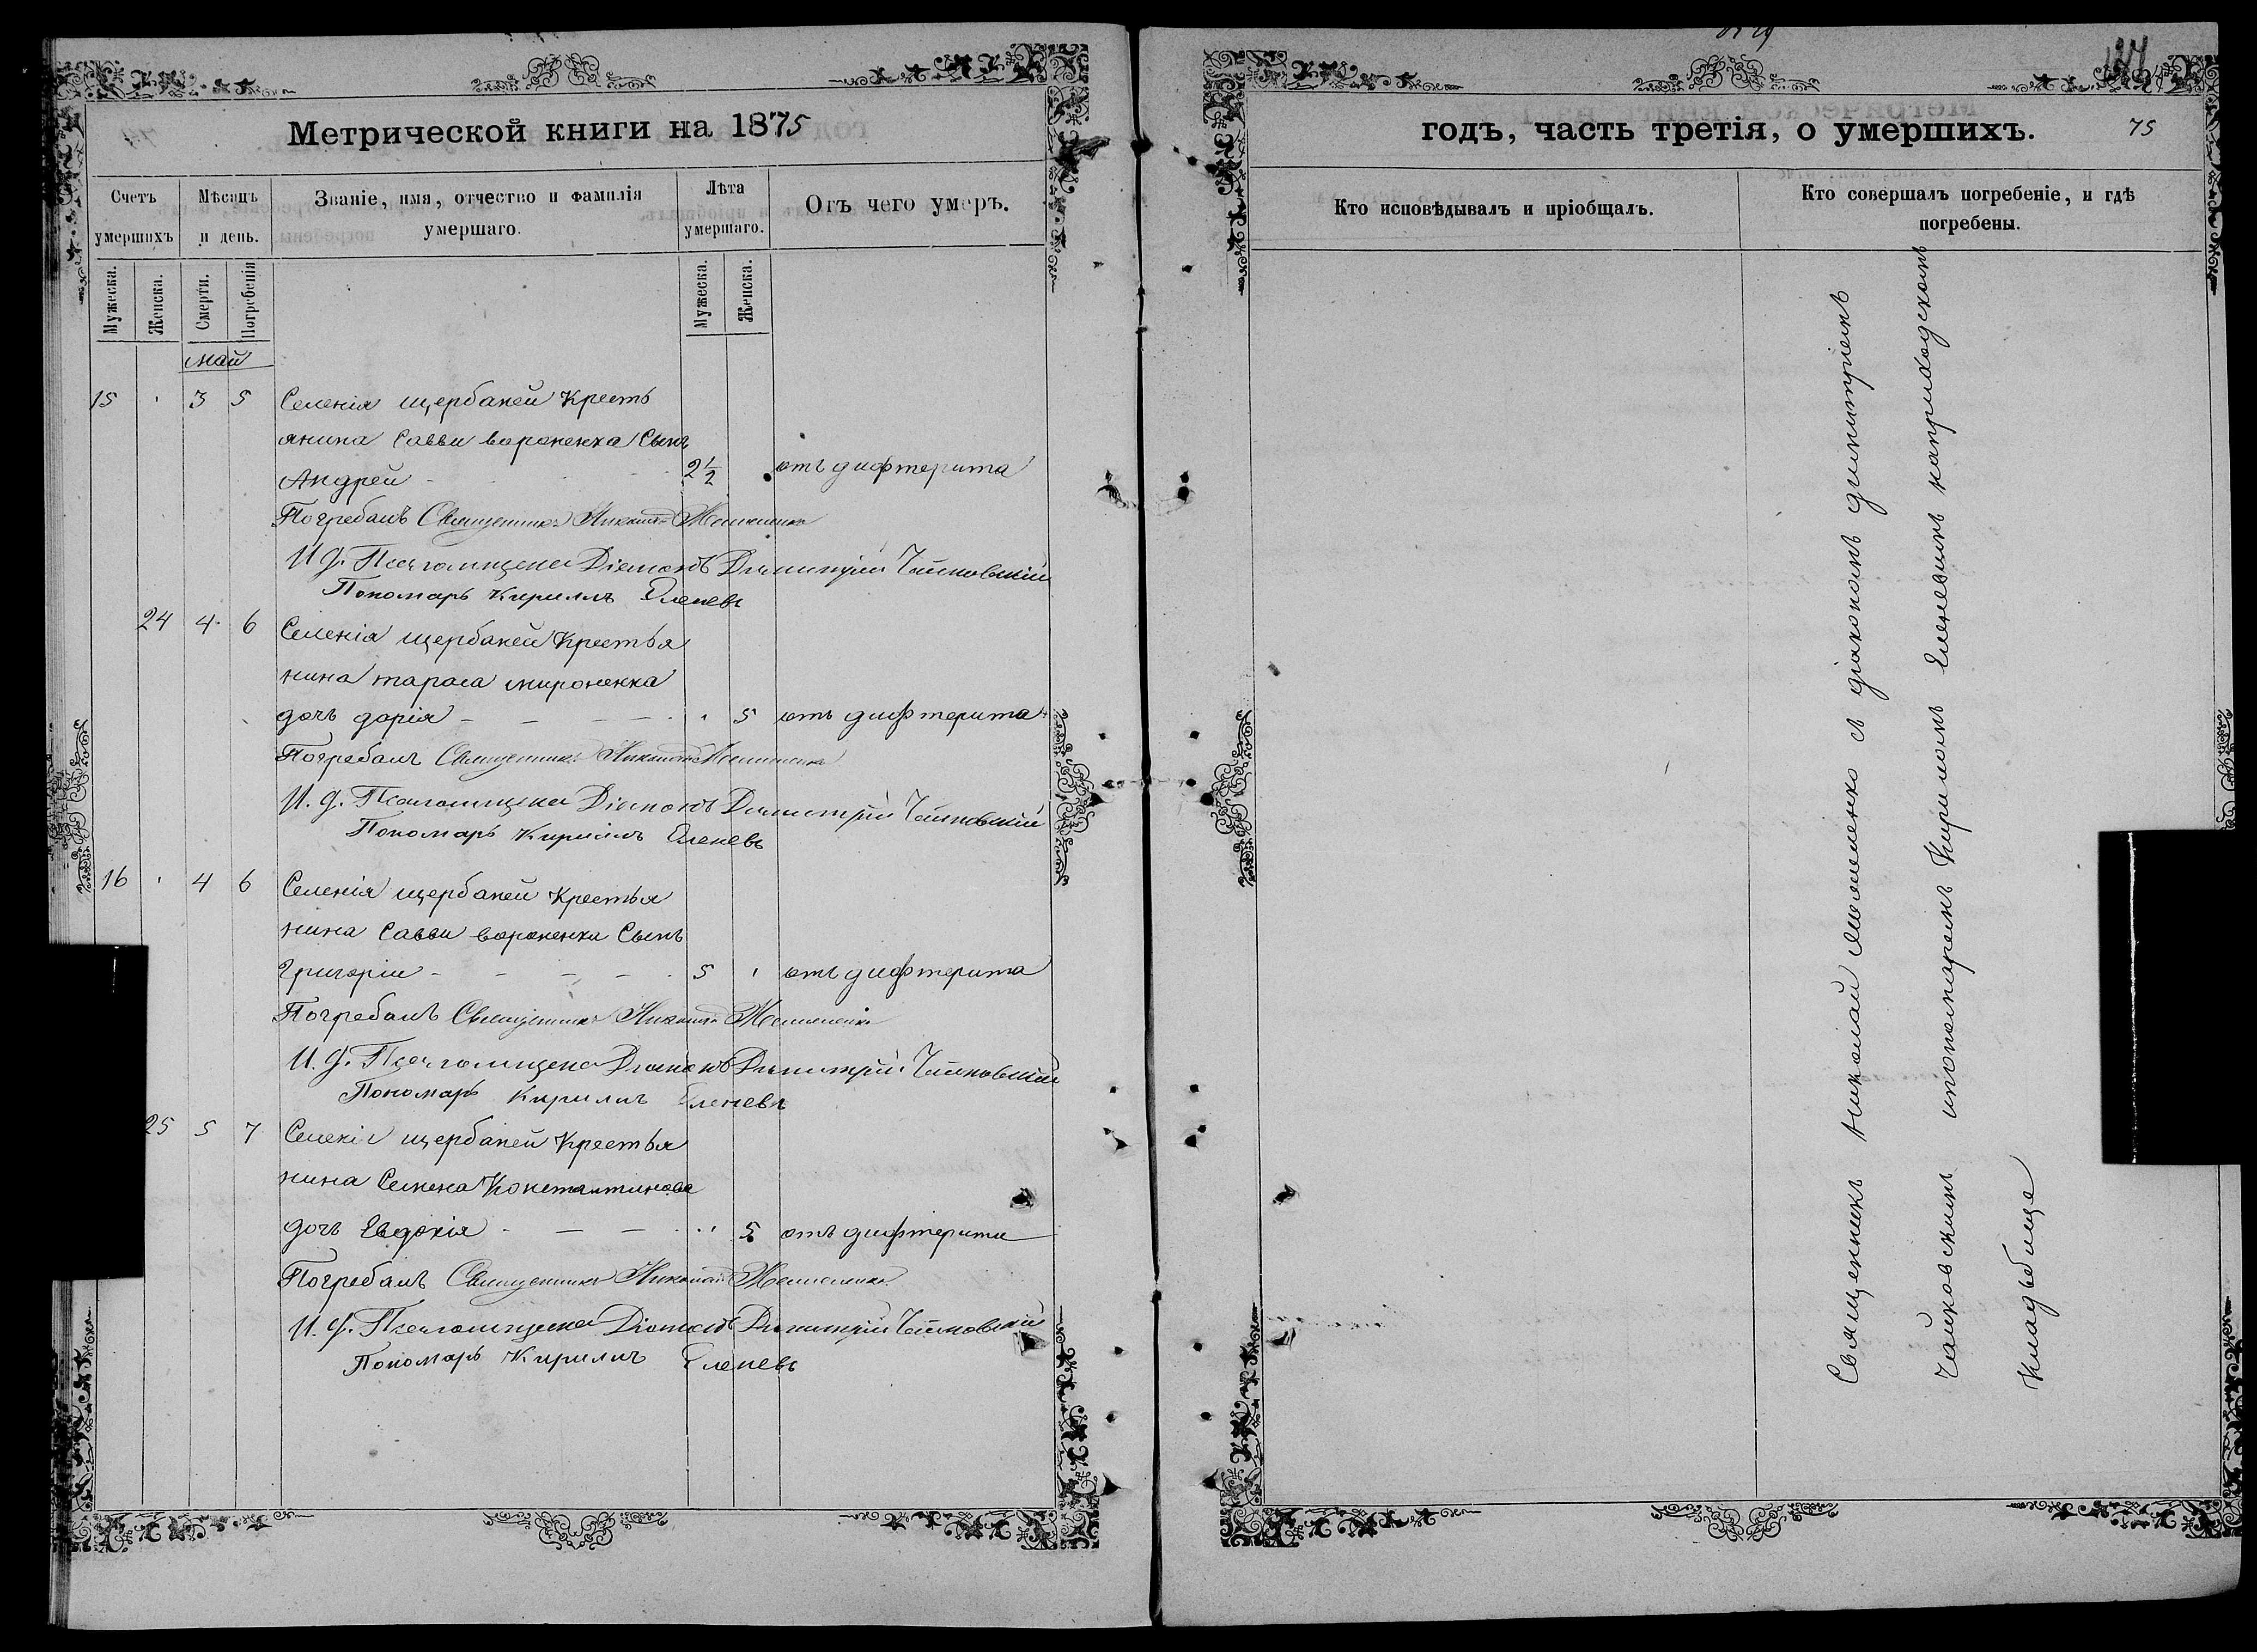 Метрической книги на 1875
Счетъ умершихъ
Мѣсяцъ и день.
Званіе, имя, отчество и фамилія умершаго.
Лѣта умершаго.
Отъ чего умеръ.
Мужеска.
Женска.
Смерти.
Погребенія
Мужеска.
Женска.
май
15 3 5 Селенія щербаней Кресть
янина Савви вороненка Сынъ
Андрей 2 1/2 отъ дифтерита
Погребалъ Священникъ Николай
И. д. Псаломщика Діаконъ Димитрій Чайковскій
Пономарь Кириллъ Еленевъ
24 4 6 Селенія щербаней Крестья
нина тараса мироненка
дочь дарія 5 отъ дифтерита
Погребалъ Священникъ Николай
И. д. Псаломщика Діаконъ Димитрій Чайковскій
Пономарь Кириллъ Еленевъ
16 4 6 Селенія щербаней Крестья
нина Савви вороненка Сынъ
Григорій 5 отъ дифтерита
Погребалъ Священникъ Николай
И. д. Псаломщика Діаконъ Димитрій Чайковскій
Пономарь Кириллъ Еленевъ
25 5 7 Селенія щербаней Крестья
нина Семена Константинова
дочь Евдокія 5 отъ дифтерита
Погребалъ Священникъ Николай
И. д. Псаломщика Діаконъ Димитрій Чайковскій
Пономарь Кириллъ Еленевъ
годъ, часть третія, о умершихъ.
75
Кто исповѣдывалъ и пріобщалъ.
Кто совершалъ погребеніе, и гдѣ
погребены.
Священникъ николай с діакономъ димитріемъ
Чайковскимъ ипономаремъ Кириломъ Еленевымъ наприходскомъ
Кладьбище